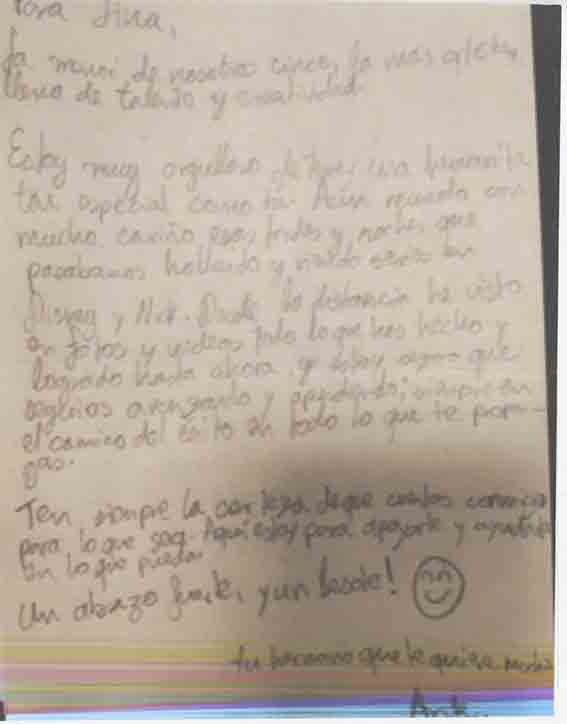 Para Lina,
La menor de nosotros cinco, la más
llena de talento y creatividad.
Estoy muy orgulloso de tener una hermanita
tan especial como tú. Aún recuerdo con
mucho cariño esas tardes y noches que
pasabamos hablando y viendo series en
Disney y Nick. Desde la distancia he visto
en fotos y videos todo lo que has hecho y
logrado hasta ahora, y estoy seguro que
seguirás avanzando y aprendiendo, siempre en
el camino del éxito en todo lo que te propon-
gas.
Ten siempre la certeza de que cuentas conmigo
para lo que sea. Aquí estoy para apoyarte y ayudarte
en lo que pueda.
Un abrazo fuerte, y un besote!
tu hermano que te quiere mucho